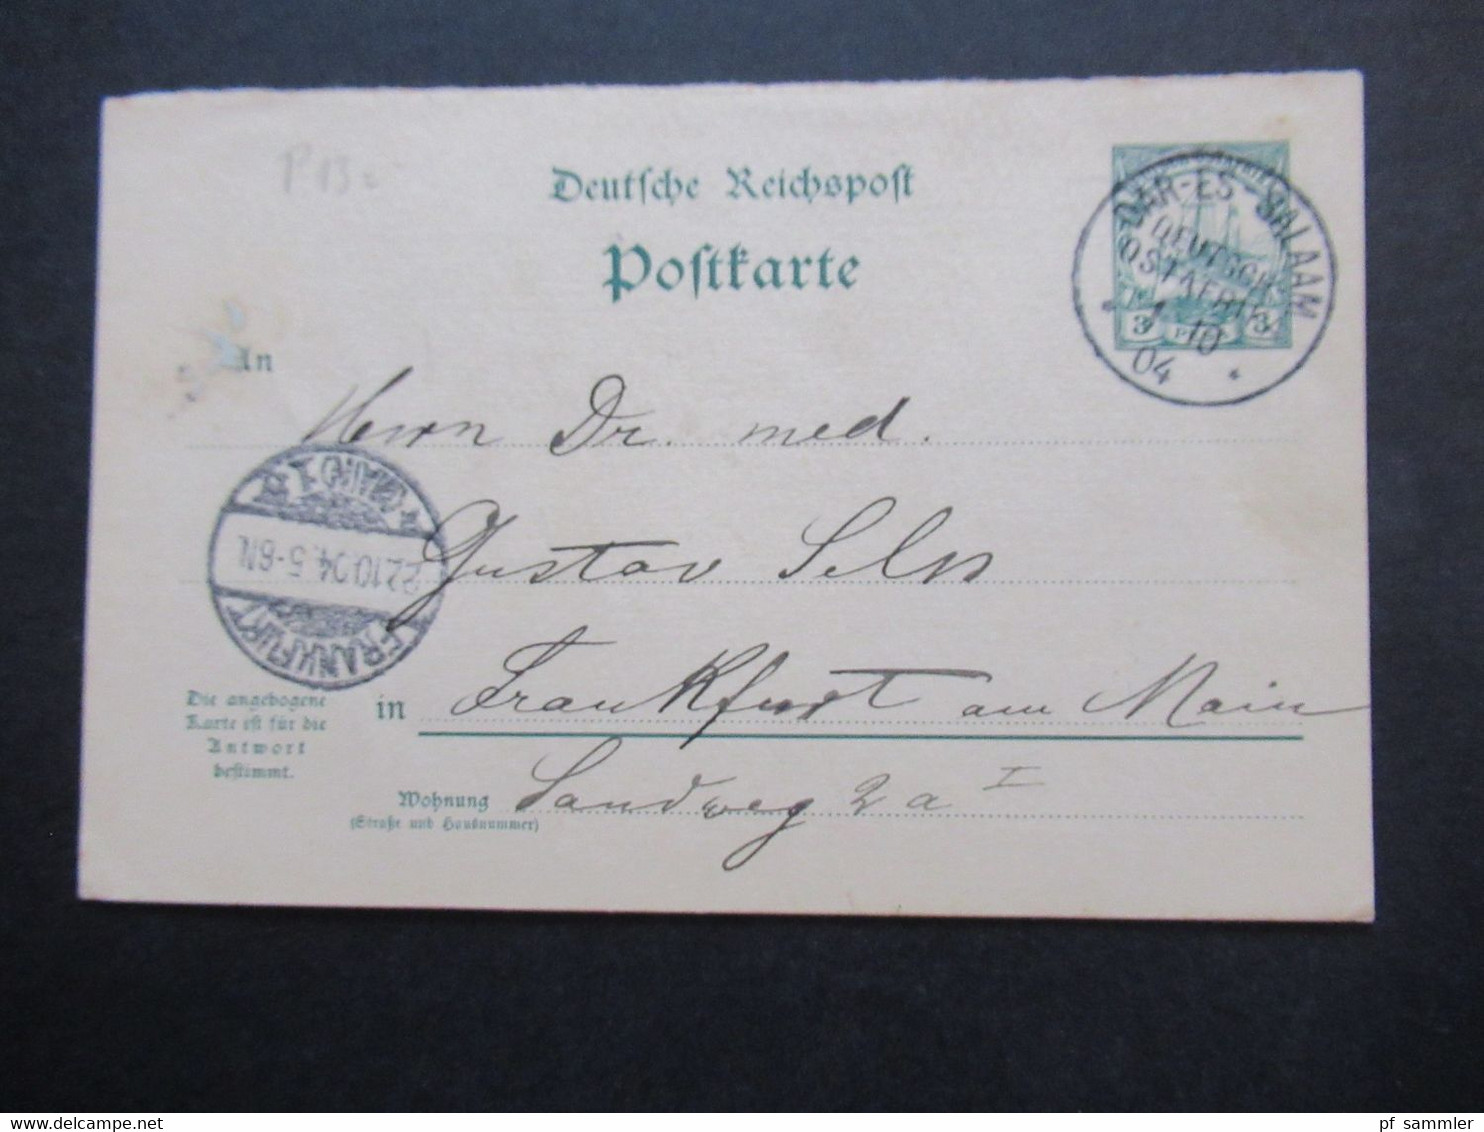 P 13
Deutsche Reichspost
Postkarte
DAR-ES-SALAAM
DEUTSCH
OSTAFRIKA
1 10
04
3 3
An
Herrn Dr. med.
Gustav
Frankfurt am Main
FRANKFURT
22.10.04. 5-6N.
* (MAIN) 1 *
Die angebogene
Karte ist für die
Antwort
bestimmt.
in
Wohnung
(Straße und Hausnummer)
Sandweg 2 a I
delcampe.net
pf_sammler